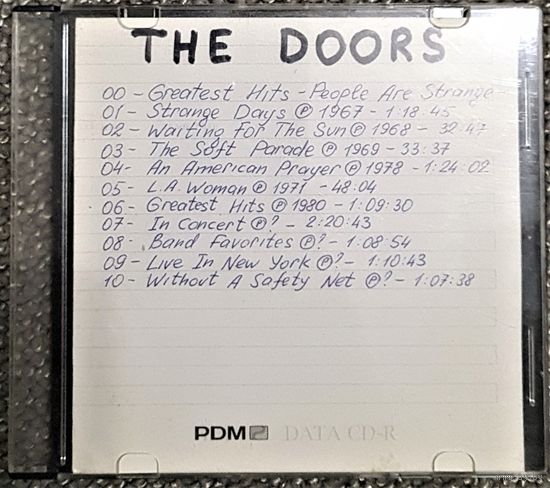 THE DOORS
00 - Greatest Hits - People Are Strange -
01 - Strange Days ℗ 1967 - 1:18:45
02 - Waiting for The Sun ℗ 1968 - 32:47
03 - The Soft Parade ℗ 1969 - 33:37
04 - An American Prayer ℗ 1978 - 1:24:02
05 - L.A. Woman ℗ 1971 - 48:04
06 - Greatest Hits ℗ 1980 - 1:09:30
07 - In Concert ℗? - 2:20:43
08 - Band Favorites ℗? - 1:08:54
09 - Live In New York ℗? - 1:10:43
10 - Without A Safety Net ℗? - 1:07:38
PDM DATA CD-R